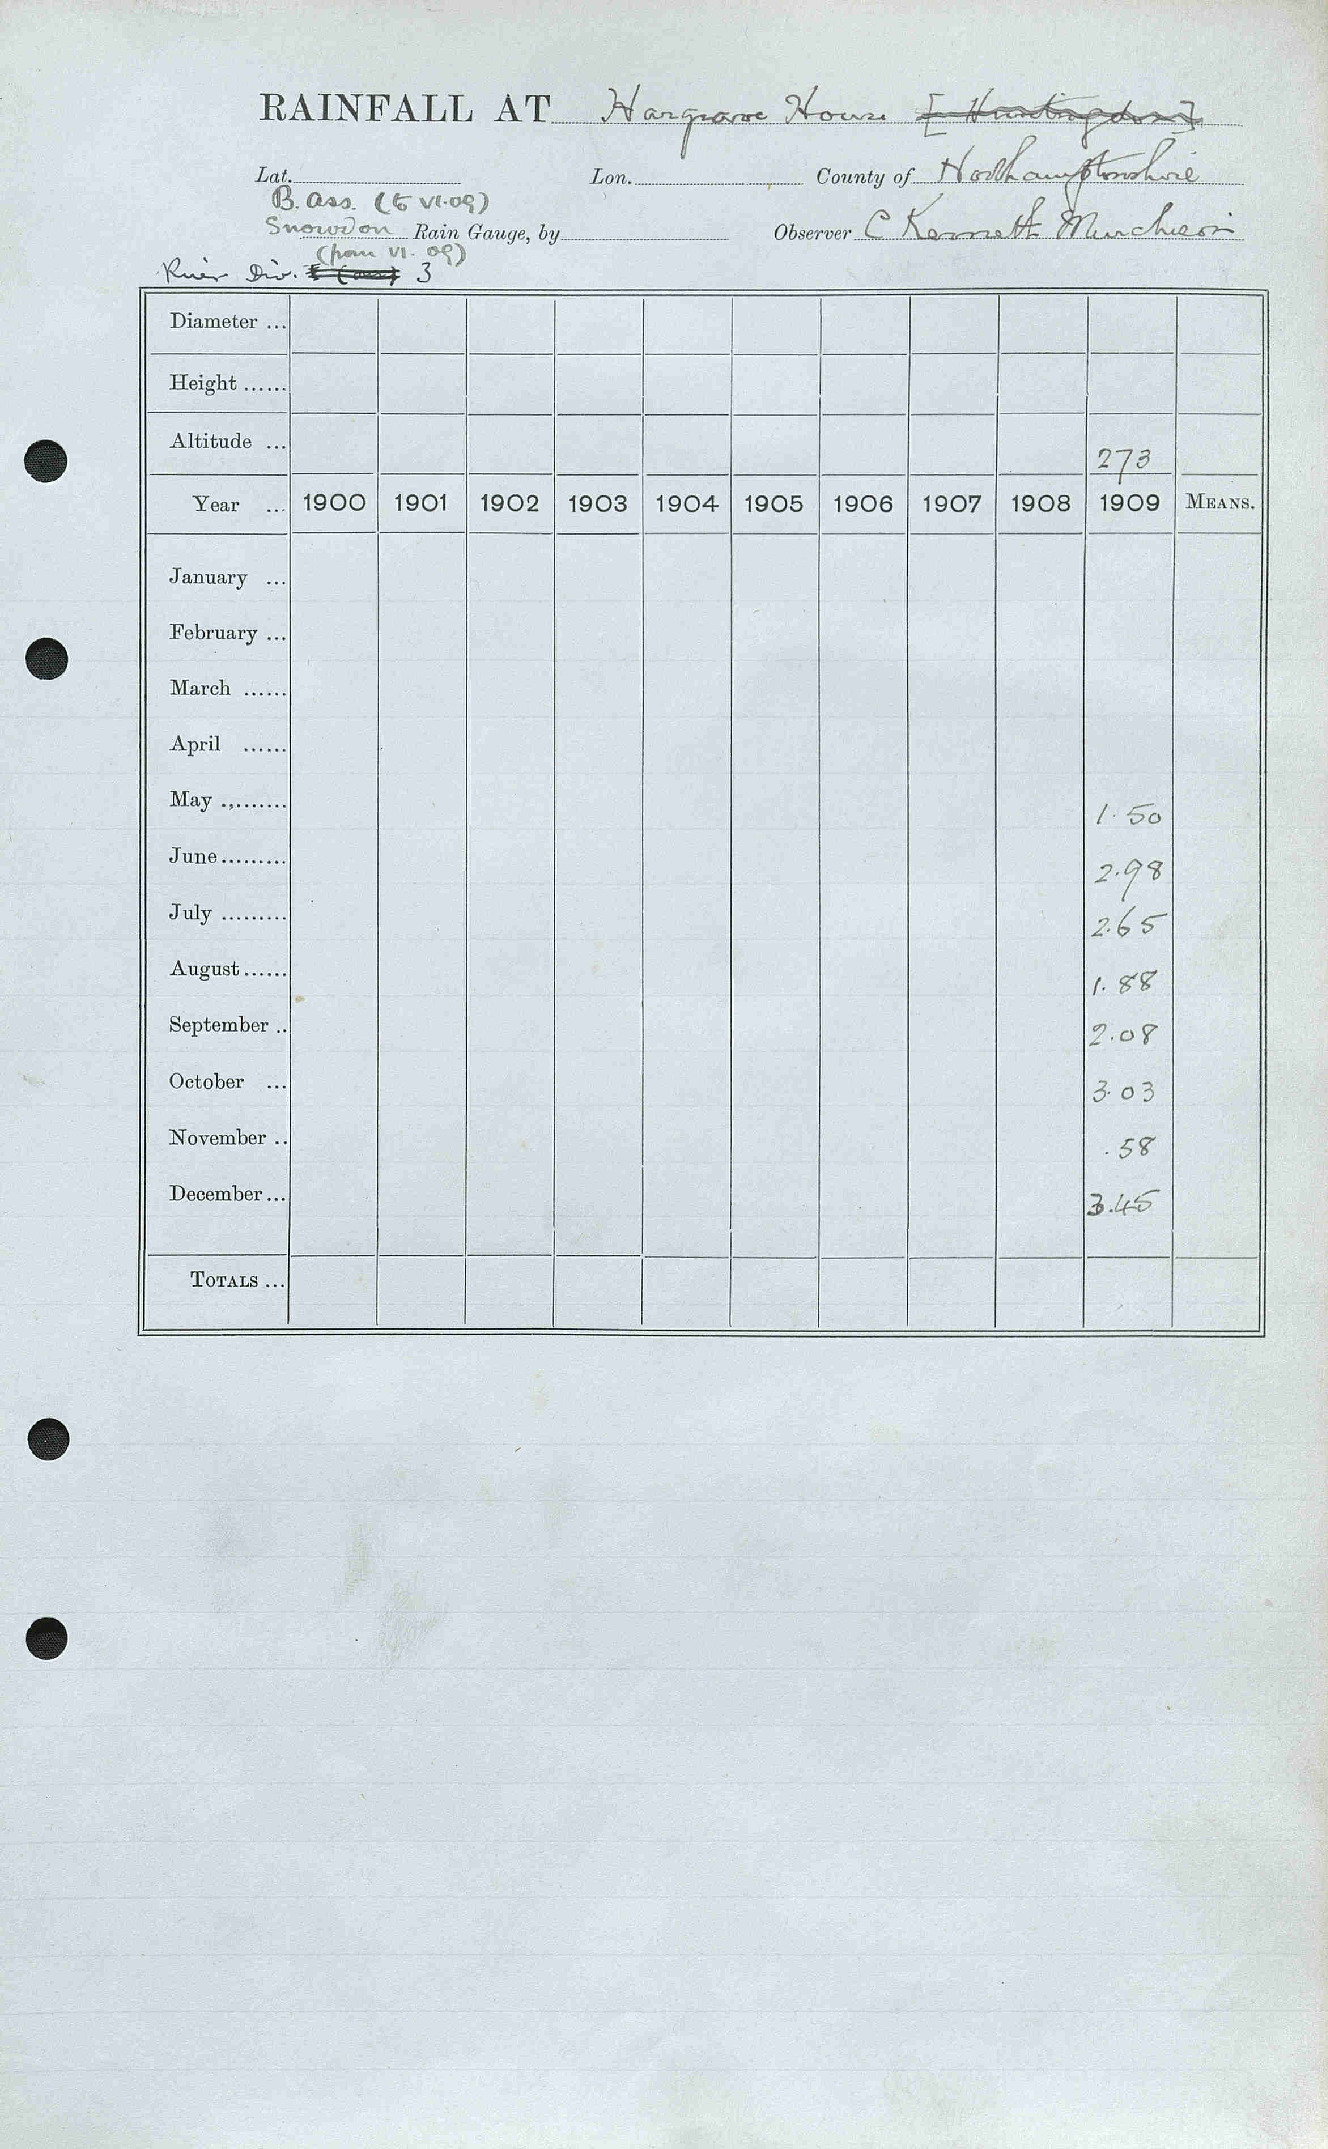 RAINFALL AT Hargrave House [Huntingdon]
Lat. Lon. County of Northamptonshire
B. Ass. (to VI.09)
Snowdon Rain Gauge, by Observer C Kenneth Murchison
(from VI. 09)
River Div. 3
Diameter ...
Height ......
Altitude ... 273
Year ... 1900 1901 1902 1903 1904 1905 1906 1907 1908 1909 MEANS.
January ...
February ...
March ......
April ......
May ......... 1.50
June ......... 2.98
July ......... 2.65
August ...... 1.88
September .. 2.08
October ... 3.03
November .. .58
December ... 3.45
TOTALS ...